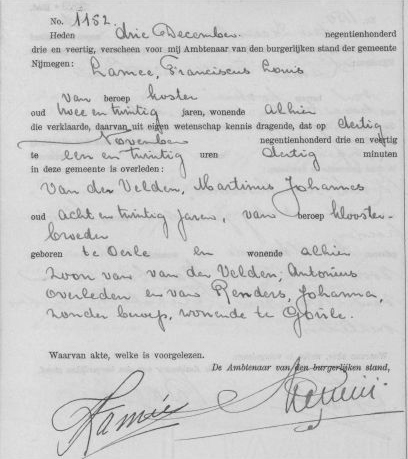 No. 1152.
Heden drie December negentienhonderd
drie en veertig, verscheen voor mij Ambtenaar van den burgerlijken stand der gemeente
Nijmegen: Lamee, Franciscus Louis
van beroep koster
oud twee en twintig jaren, wonende alhier
die verklaarde, daarvan uit eigen wetenschap kennis dragende, dat op dertig
November negentienhonderd drie en veertig
te een en twintig uren dertig minuten
in deze gemeente is overleden:
Van der Velden, Martinus Johannes
oud acht en twintig jaren, van beroep klooster-
broeder
geboren te Oerle en wonende alhier
zoon van van der Velden, Antonius
overleden en van Renders, Johanna,
zonder beroep, wonende te Goirle.
Waarvan akte, welke is voorgelezen.
De Ambtenaar van den burgerlijken stand,
Lamée